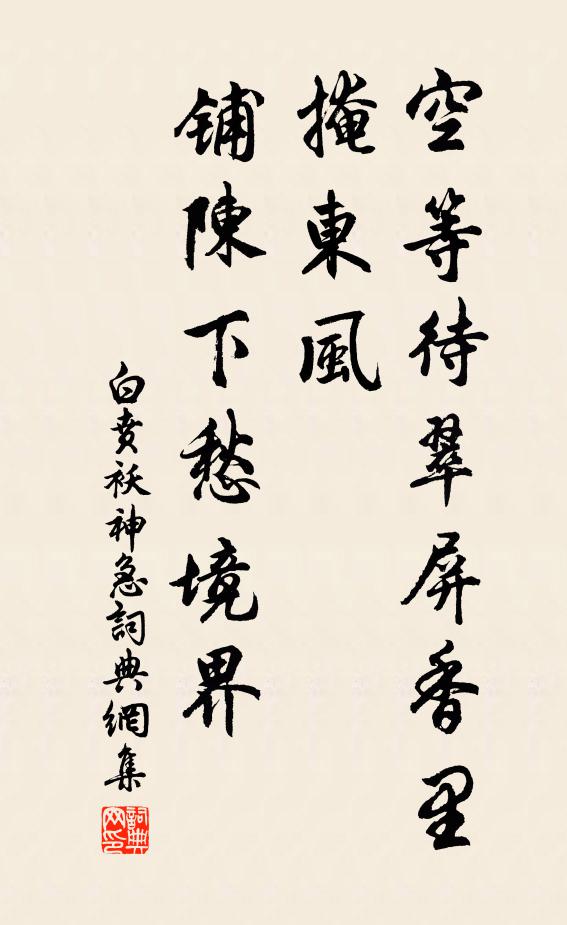 空等待翠屏香里
掩東風
鋪陳下愁境界
白賁祆神急詞典網集
詞典网印